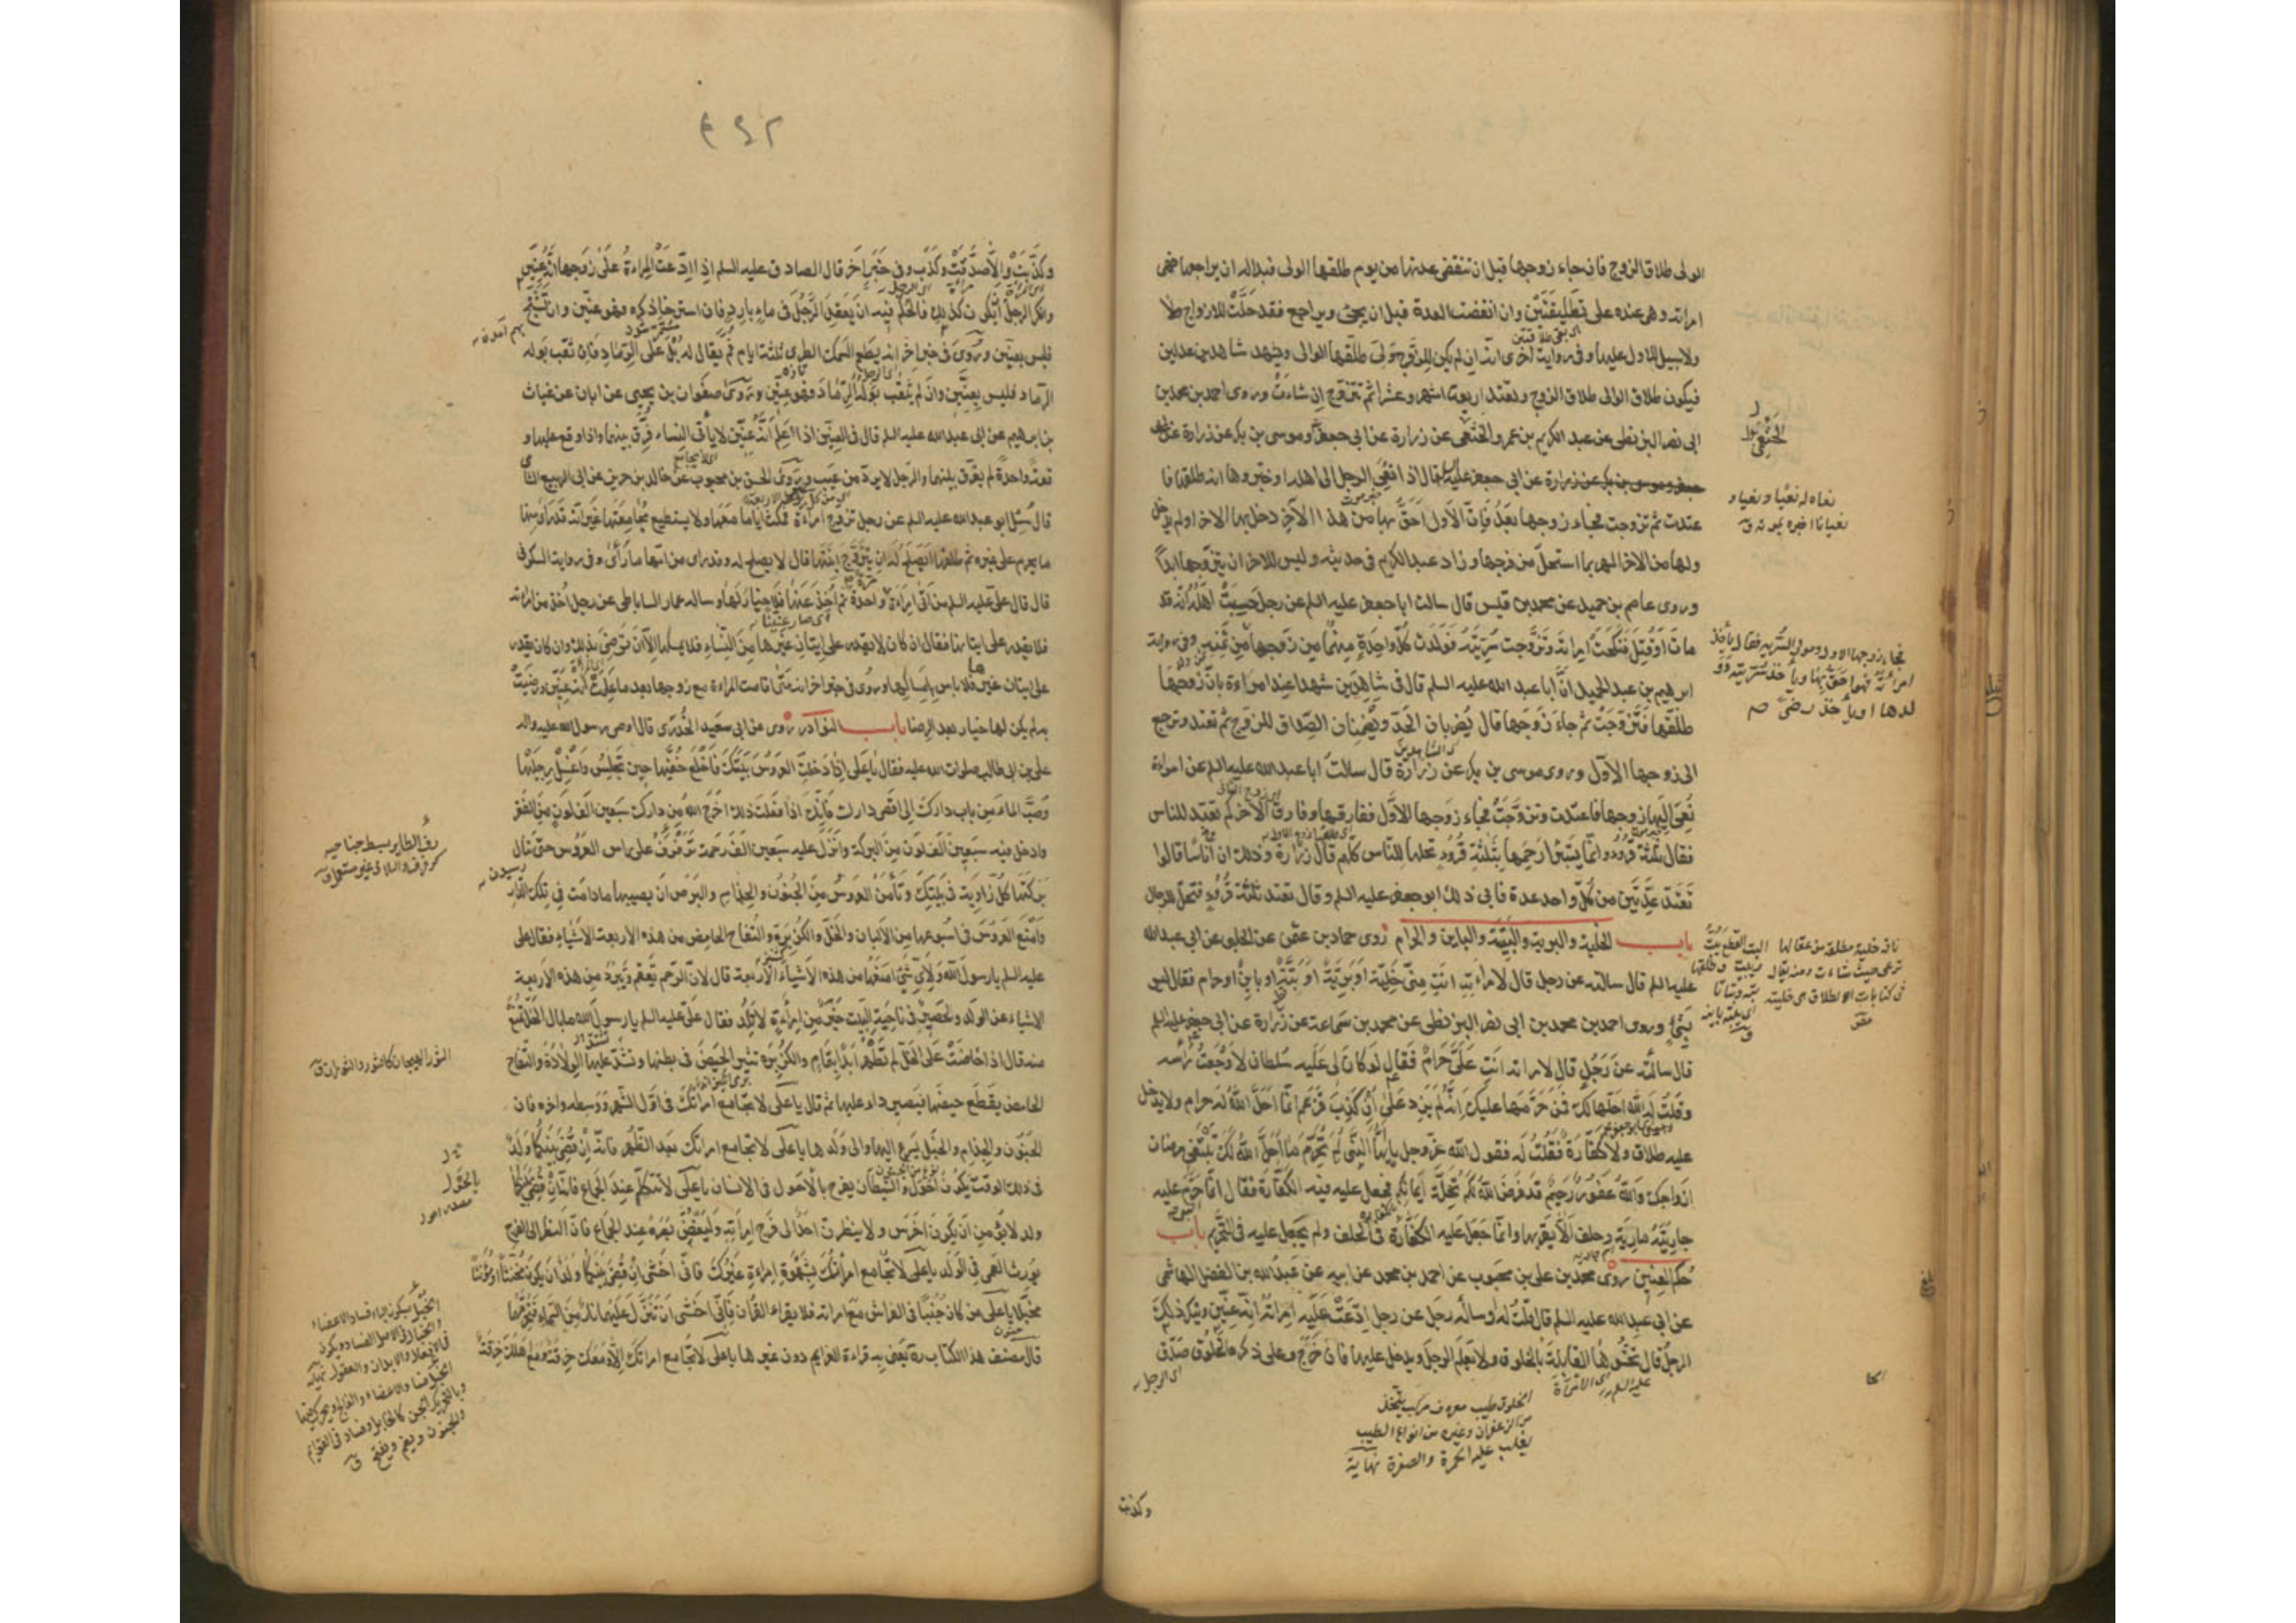 الولى طلاق الزوج فان جاء زوجها قبل ان تنقضى عدتها من يوم طلقها الولى فبدا له ان يراجعها فهى
امراته وهى عنده على تطليقتين وان انقضت العدة قبل ان يجئ ويراجع فقد حلت للازواج ولا
ولا سبيل للاول عليها وفى رواية اخرى انه ان لم يكن للزوج ولى طلقها الوالى ويشهد شاهدين عدلين
فيكون طلاق الوالى طلاق الزوج وتعتد اربعة اشهر وعشرا ثم تتزوج ان شاءت وروى احمد بن محمد بن
ابى نصر البزنطى عن عبد الكريم بن عمرو الخثعمى عن زرارة عن ابى جعفر وموسى بن بكر عن زرارة عن ابى
جعفر وموسى بن بكر عن زرارة عن ابى جعفر عليه السلم قال اذا نعى الرجل الى اهله او خبروها انه طلقها فا
عتدت ثم تزوجت فجاء زوجها بعد فان الاول احق بها من هذا الاخر دخل بها الاخر او لم يدخل
ولها من الاخر المهر بما استحل من فرجها وزاد عبد الكريم فى حديثه وليس للاخر ان يتزوجها ابدا
وروى عاصم بن حميد عن محمد بن قيس قال سالت ابا جعفر عليه السلم عن رجل حسبت اهله انه قد
مات او قتل فنكحت امراته وتزوجت سريته فولدت كل واحدة منهما من زوجها ثم وفى رواية
ابرهيم بن عبد الحميد ان ابا عبد الله عليه السلم قال فى شاهدين شهدا عند امراة بان زوجها
طلقها فتزوجت ثم جاء زوجها قال يضربان الحد ويضمنان الصداق للزوج ثم تعتد وترجع
الى زوجها الاول وروى موسى بن بكر عن زرارة قال سالت ابا عبد الله عليه السلم عن امراة
نعى اليها زوجها فاعتدت وتزوجت فجاء زوجها الاول ففارقها وفارق الاخر كم تعتد للناس
فقال ثلثة قروء وانما يستبرا رحمها بثلثة قروء تحلها للناس كلهم قال زرارة وذلك ان اناسا قالوا
تعتد عدتين من كل واحد عدة فابى ذلك ابو جعفر عليه السلم وقال تعتد ثلثة قروء فتحل للرجال
باب الخلية والبرية والبتة والباين والحرام روى حماد بن عثمن عن الحلبى عن ابى عبد الله
عليه السلم قال سالته عن رجل قال لامراته انت منى خلية او برية او بتة او باين او حرام فقال ليس
بشئ وروى احمد بن محمد بن ابى نصر البزنطى عن محمد بن سماعة عن زرارة عن ابى جعفر عليه السلم
قال سالته عن رجل قال لامراته انت على حرام فقال لو كان لى عليه سلطان لاوجعت راسه
وقلت له الله احلها لك فمن حرمها عليك انه لم يزد على ان كذب فزعم ان ما احل الله له حرام ولا يدخل
عليه طلاق ولا كفارة فقلت له فقول الله عز وجل يا ايها النبى لم تحرم ما احل الله لك تبتغى مرضات
ازواجك والله غفور رحيم قد فرض الله لكم تحلة ايمانكم فجعل عليه فيه الكفارة فقال انما حرم عليه
جاريته مارية وحلف الا يقربها وانما جعل عليه الكفارة فى الحلف ولم يجعل عليه فى التحريم باب
حكم العنين روى محمد بن على بن محبوب عن احمد بن محمد عن ابيه عن عبد الله بن الفضل الهاشمى
عن ابى عبد الله عليه السلم قال قلت له او ساله رجل عن رجل ادعت عليه امراته انه عنين وينكر ذلك
الرجل قال تحشوها القابلة بالخلوق ولا تعلم الرجل ويدخل عليها فان خرج وعلى ذكره الخلوق صدق
الخلوق طيب معروف مركب يتخذ
من الزعفران وغيره من انواع الطيب
يغلب عليه الحمرة والصفرة نهاية
وكذبت
نعاه له نعيا ونعيا و
نعيانا اخبره بموته ق
وكذبت والا صدقت وكذب وفى خبر اخر قال الصادق عليه السلم اذا ادعت المراة على زوجها انه عنين
وانكر الرجل ان يكون كذلك فالحكم فيه ان يقعد الرجل فى ماء بارد فان استرخى ذكره فهو عنين وان تشنج
فليس بعنين وروى فى خبر اخر انه يطعم السمك الطرى ثلثة ايام ثم يقال له بل على الرماد فان ثقب بوله
الرماد فليس بعنين وان لم يثقب بوله الرماد فهو عنين وروى صفوان بن يحيى عن ابان عن غياث
بن ابرهيم عن ابى عبد الله عليه السلم قال فى العنين اذا علم انه عنين لا ياتى النساء فرق بينهما واذا وقع عليها و
قعة واحدة لم يفرق بينهما والرجل لا يرد من عيب وروى الحسن بن محبوب عن خالد بن جرير عن ابى الربيع الشامى
قال سئل ابو عبد الله عليه السلم عن رجل تزوج امراة فمكث اياما معها ولا يستطيع مجامعتها غير انه قد راى منها
ما يحرم على غيره ثم طلقها ايصلح له ان يتزوج ابنتها قال لا يصلح له وقد راى من امها ما راى وفى رواية السكونى
قال قال على عليه السلم من اتى امراة واحدة ثم اخذ عنها فلا خيار لها وساله عمار الساباطى عن رجل اخذ عن امراته
فلا يقدر على ايتانها فقال ان كان لا يقدر على ايتان غيرها من النساء فلا يمسكها الا ان ترضى بذلك وان كان يقدر
على ايتان غيرها فلا باس بامساكها وروى فى خبر اخر انه متى اقامت المراة مع زوجها بعد ما علمت انه عنين ورضيت
به لم يكن لها خيار بعد الرضا باب النوادر روى عن ابى سعيد الخدرى قال اوصى رسول الله عليه واله
على بن ابى طالب صلوات الله عليه فقال يا على اذا دخلت العروس بيتك فاخلع خفيها حين تجلس واغسل رجليها
وصب الماء من باب دارك الى اقصى دارك فانك اذا فعلت ذلك اخرج الله من دارك سبعين الف لون من الفقر
وادخل فيه سبعين الف لون من البركة وانزل عليه سبعين الف رحمة ترفرف على راس العروس حتى تنال
بركتها كل زاوية فى بيتك وتامن العروس من الجنون والجذام والبرص ان يصيبها ما دامت فى تلك الدار
وامنع العروس فى اسبوعها من الالبان والخل والكزبرة والتفاح الحامض من هذه الاربعة الاشياء فقال على
عليه السلم يا رسول الله ولاى شئ امنعها من هذه الاشياء الاربعة قال لان الرحم تعقم وتبرد من هذه الاربعة
الاشياء عن الولد ولحصير فى ناحية البيت خير من امراة لا تلد فقال على عليه السلم يا رسول الله ما بال الخل تمنع
منه قال اذا حاضت على الخل لم تطهر ابدا بتمام والكزبرة تثير الحيض فى بطنها وتشدد عليها الولادة والتفاح
الحامض يقطع حيضها فيصير داء عليها ثم قال يا على لا تجامع امراتك فى اول الشهر ووسطه واخره فان
الجنون والجذام والخبل يسرع اليها والى ولدها يا على لا تجامع امراتك بعد الظهر فانه ان قضى بينكما ولد
فى ذلك الوقت يكون احول والشيطان يفرح بالاحول فى الانسان يا على لا تتكلم عند الجماع فانه ان قضى بينكما
ولد لا يؤمن ان يكون اخرس ولا ينظرن احد الى فرج امراته وليغض بصره عند الجماع فان النظر الى الفرج
يورث العمى فى الولد يا على لا تجامع امراتك بشهوة امراة غيرك فانى اخشى ان قضى بينكما ولد ان يكون مخنثا او مؤنثا
مخبلا يا على من كان جنبا فى الفراش مع امراته فلا يقرا القران فانى اخشى ان تنزل عليهما نار من السماء فتحرقهما
قال مصنف هذا الكتاب ره يعنى به قراءة العزايم دون غيرها يا على لا تجامع امراتك الا ومعك خرقة ومع اهلك خرقة